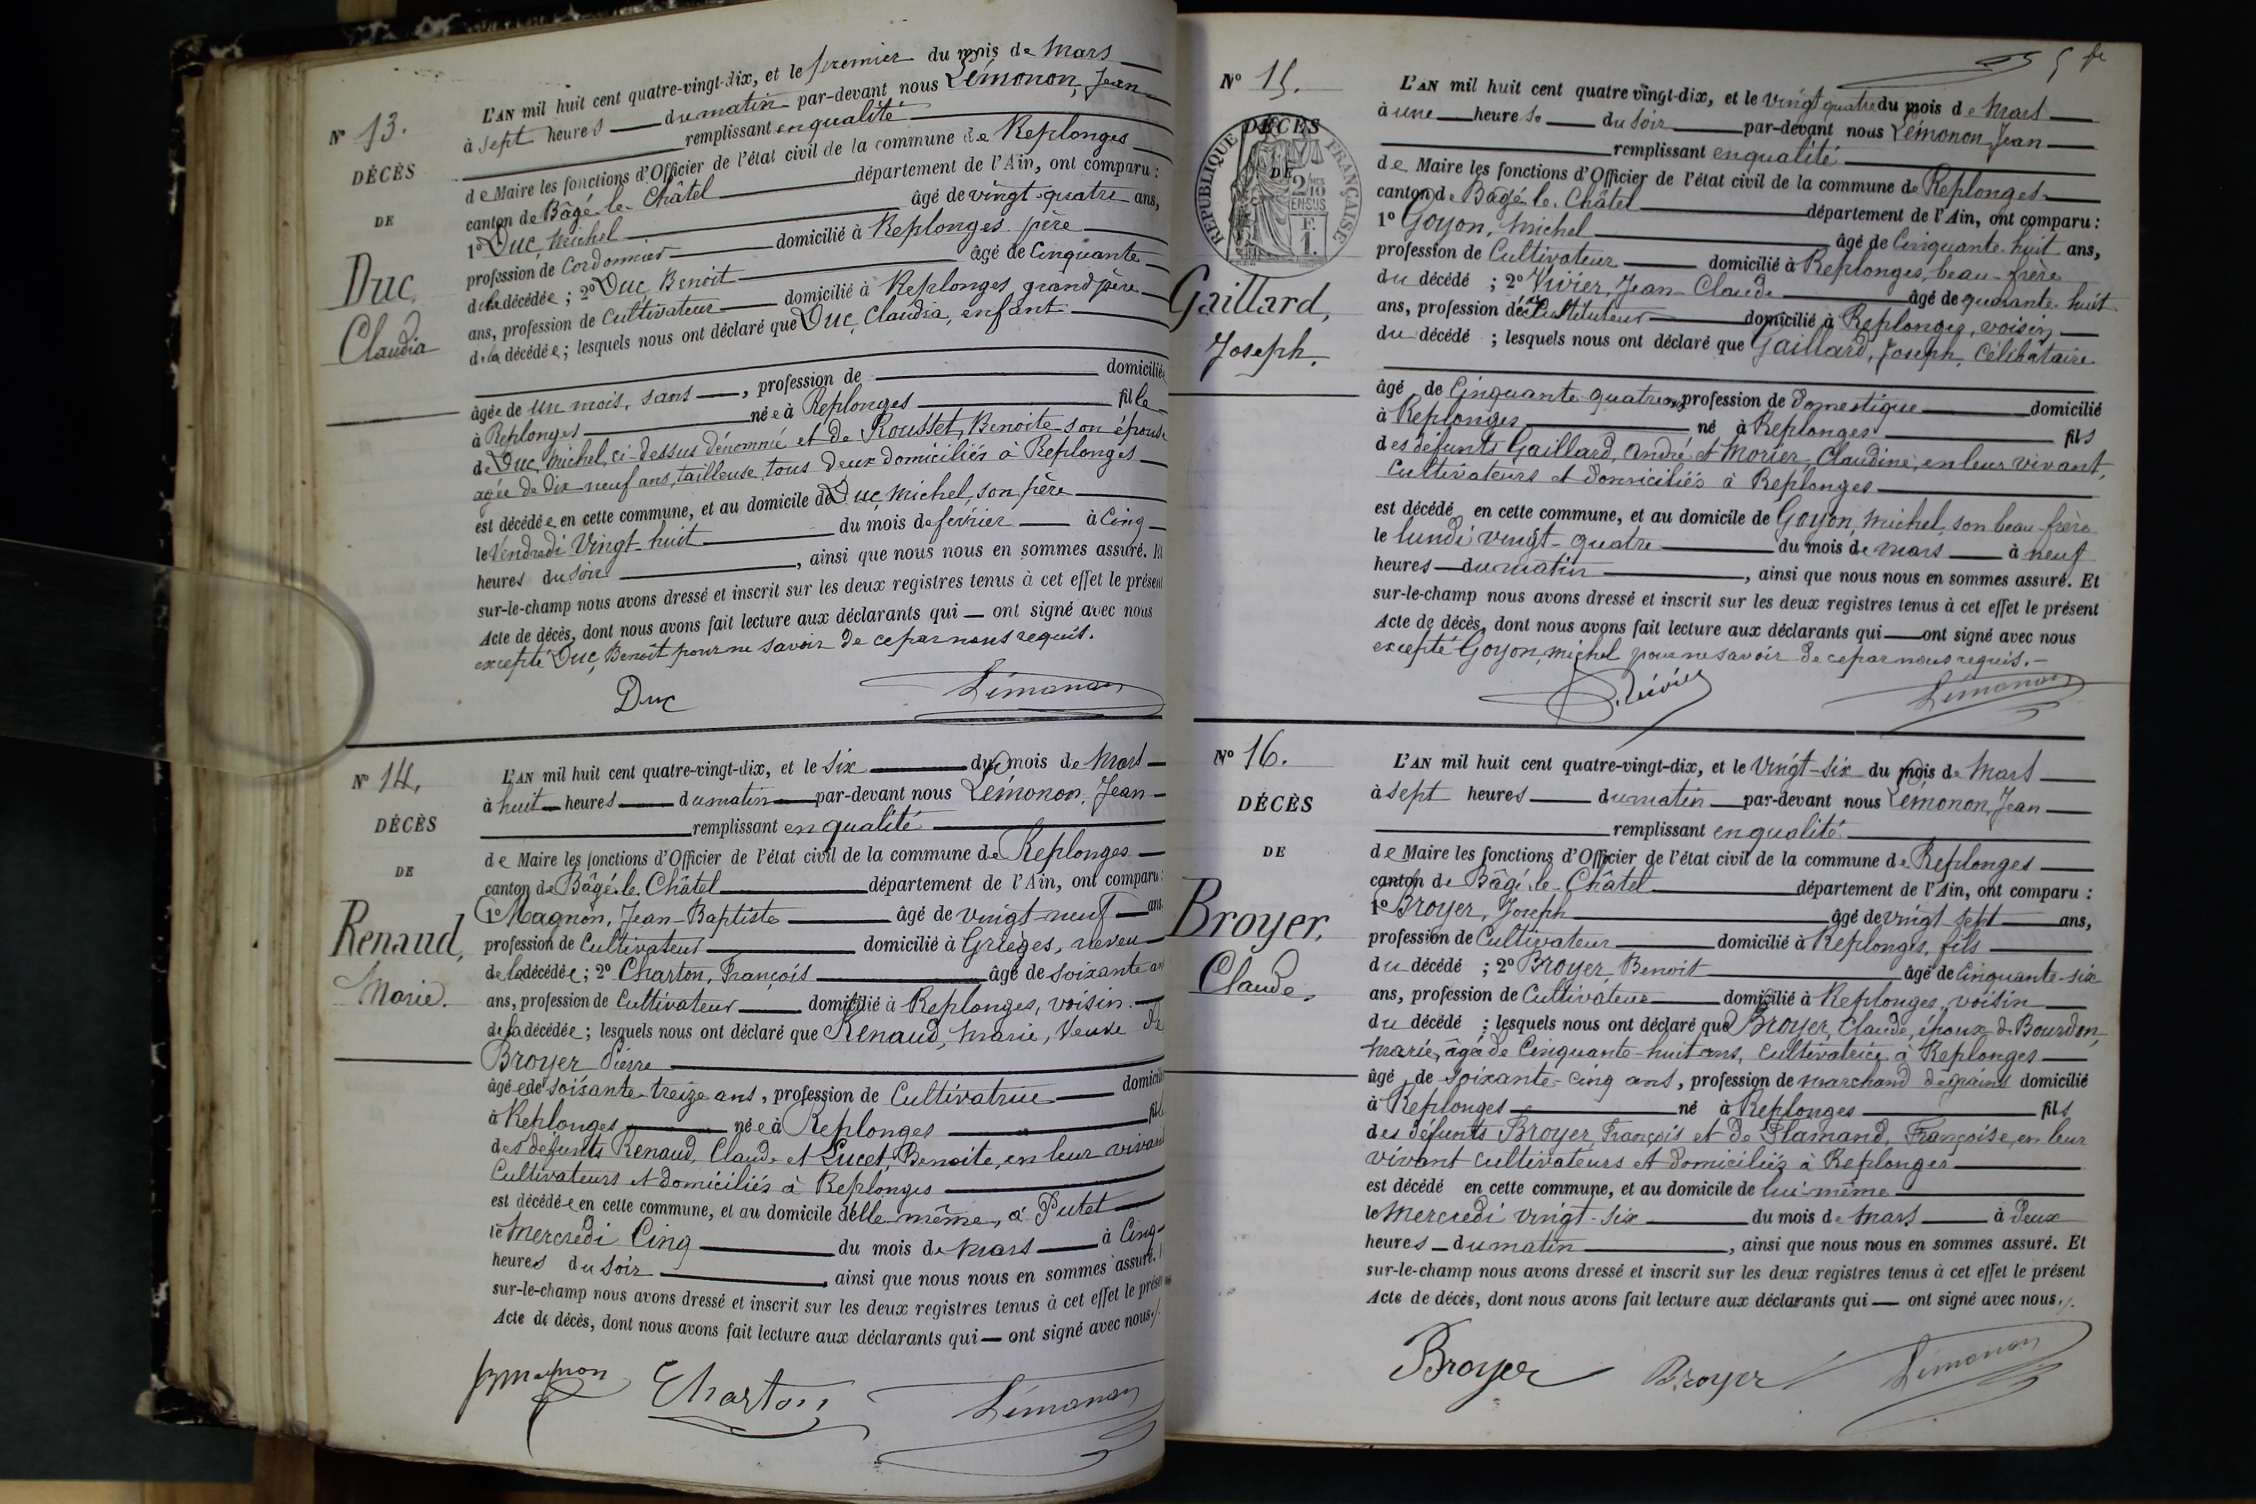 N° 13.
DÉCÈS
DE
Duc,
Claudia
L'AN mil huit cent quatre-vingt-dix, et le premier du mois de Mars
à sept heures du matin par-devant nous Lémonon, Jean
remplissant en qualité
de Maire les fonctions d'Officier de l'état civil de la commune de Replonges
canton de Bâgé-le-Châtel département de l'Ain, ont comparu :
1° Duc, Michel âgé de vingt-quatre ans,
profession de Cordonnier domicilié à Replonges père
de la décédée ; 2° Duc Benoit âgé de Cinquante
ans, profession de Cultivateur domicilié à Replonges, grand père
de la décédée ; lesquels nous ont déclaré que Duc, Claudia, enfant
âgée de un mois, sans , profession de domiciliée
à Replonges née à Replonges fille
de Duc, Michel, ci-dessus dénommé et de Rousset, Benoite son épouse
agée de dix neuf ans, tailleuse, tous deux domiciliés à Replonges
est décédée en cette commune, et au domicile de Duc, Michel, son père
le Vendredi Vingt-huit du mois de février à Cinq
heures du soir , ainsi que nous nous en sommes assuré. Et
sur-le-champ nous avons dressé et inscrit sur les deux registres tenus à cet effet le présent
Acte de décès, dont nous avons fait lecture aux déclarants qui ont signé avec nous
excepté Duc, Benoit pour ne savoir de ce par nous requis.
Duc Lémonon
N° 14.
DÉCÈS
DE
Renaud,
Marie.
L'AN mil huit cent quatre-vingt-dix, et le six du mois de Mars
à huit heures du matin par-devant nous Lémonon, Jean
remplissant en qualité
de Maire les fonctions d'Officier de l'état civil de la commune de Replonges
canton de Bâgé-le-Châtel département de l'Ain, ont comparu :
1° Magnon, Jean-Baptiste âgé de vingt-neuf ans
profession de Cultivateur domicilié à Grièges, neveu
de la décédée ; 2° Charton, François âgé de soixante
ans, profession de Cultivateur domicilié à Replonges, voisin
de la décédée ; lesquels nous ont déclaré que Renaud, Marie, Veuve de
Broyer Pierre
âgée de soixante-treize ans, profession de Cultivatrice domicilié
à Replonges née à Replonges fille
des défunts Renaud, Claude et Lucet, Benoite, en leur vivant
Cultivateurs et domiciliés à Replonges
est décédée en cette commune, et au domicile d'elle-même, à Putet
le Mercredi Cinq du mois de Mars à Cinq
heures du soir , ainsi que nous nous en sommes assuré.
sur-le-champ nous avons dressé et inscrit sur les deux registres tenus à cet effet le présent
Acte de décès, dont nous avons fait lecture aux déclarants qui ont signé avec nous
Charton Lémonon
5
N° 15.
DÉCÈS
DE
RÉPUBLIQUE FRANÇAISE
2/10 EN SUS
F. 1.
Gaillard,
Joseph.
L'AN mil huit cent quatre-vingt-dix, et le vingt quatre du mois de Mars
à une heure du soir par-devant nous Lémonon Jean
remplissant en qualité
de Maire les fonctions d'Officier de l'état civil de la commune de Replonges
canton de Bâgé-le-Châtel département de l'Ain, ont comparu :
1° Goyon, Michel âgé de Cinquante-huit ans,
profession de Cultivateur domicilié à Replonges, beau-frère
du décédé ; 2° Vivier, Jean-Claude âgé de quarante-huit
ans, profession d'ex Instituteur domicilié à Replonges, voisin
du décédé ; lesquels nous ont déclaré que Gaillard, Joseph, Célibataire
âgé de Cinquante quatre ans, profession de Domestique domicilié
à Replonges né à Replonges fils
des défunts Gaillard, André et Morier, Claudine, en leur vivant,
Cultivateurs et domiciliés à Replonges
est décédé en cette commune, et au domicile de Goyon, Michel, son beau-frère
le lundi vingt-quatre du mois de Mars à neuf
heures du matin , ainsi que nous nous en sommes assuré. Et
sur-le-champ nous avons dressé et inscrit sur les deux registres tenus à cet effet le présent
Acte de décès, dont nous avons fait lecture aux déclarants qui ont signé avec nous
excepté Goyon, Michel pour ne savoir de ce par nous requis.
Vivier Lémonon
N° 16.
DÉCÈS
DE
Broyer,
Claude.
L'AN mil huit cent quatre-vingt-dix, et le Vingt-six du mois de Mars
à sept heures du matin par-devant nous Lémonon, Jean
remplissant en qualité
de Maire les fonctions d'Officier de l'état civil de la commune de Replonges
canton de Bâgé-le-Châtel département de l'Ain, ont comparu :
1° Broyer, Joseph âgé de vingt sept ans,
profession de Cultivateur domicilié à Replonges, fils
du décédé ; 2° Broyer, Benoit âgé de Cinquante-six
ans, profession de Cultivateur domicilié à Replonges, voisin
du décédé ; lesquels nous ont déclaré que Broyer, Claude, époux de Bourdon,
Marie, âgée de Cinquante-huit ans, cultivatrice à Replonges
âgé de soixante-cinq ans, profession de marchand de grains domicilié
à Replonges né à Replonges fils
des défunts Broyer, François et de Flamand, Françoise, en leur
vivant cultivateurs et domiciliés à Replonges
est décédé en cette commune, et au domicile de lui-même
le Mercredi vingt-six du mois de Mars à deux
heures du matin , ainsi que nous nous en sommes assuré. Et
sur-le-champ nous avons dressé et inscrit sur les deux registres tenus à cet effet le présent
Acte de décès, dont nous avons fait lecture aux déclarants qui ont signé avec nous.
Broyer Broyer Lémonon